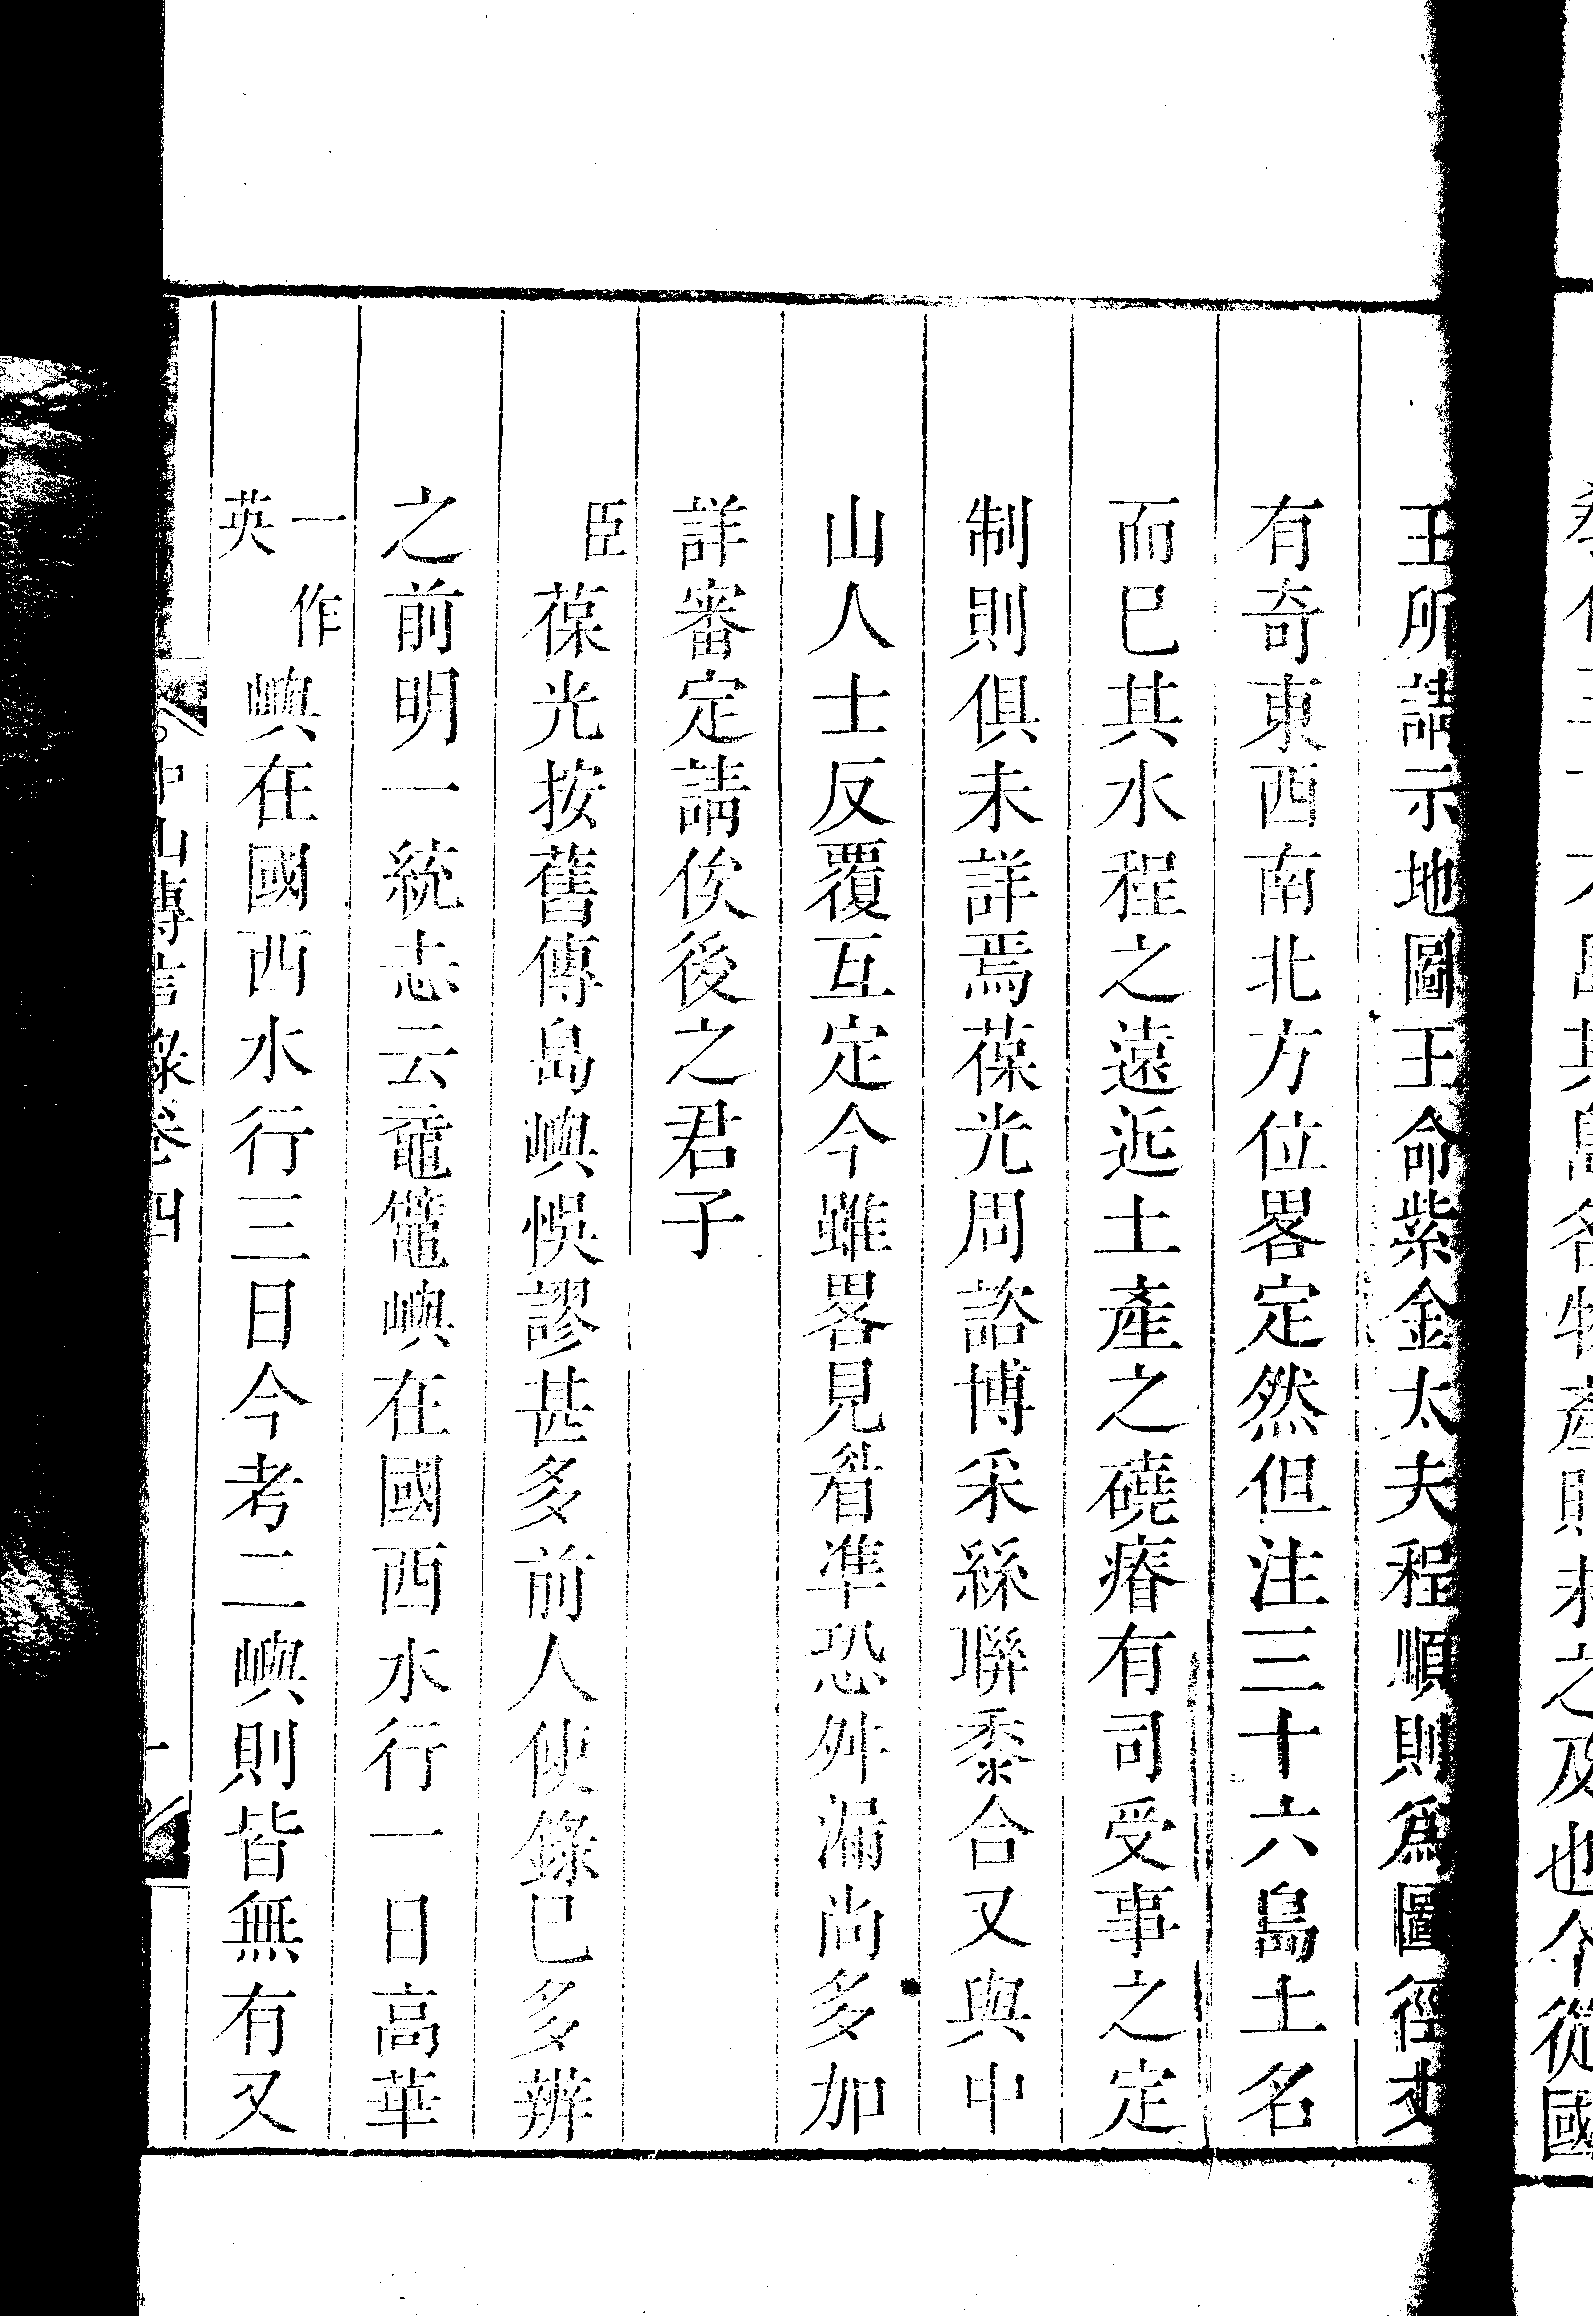 王所請示地圖王命紫金大夫程順則爲圖徑丈
有奇東西南北方位畧定然但注三十六島土名
而已其水程之遠近土產之磽瘠有司受事之定
制則俱未詳焉葆光周諮博采絲聯黍合又與中
山人士反覆互定今雖畧見眉準恐舛漏尚多加
詳審定請俟後之君子
臣葆光按舊傳島嶼悞謬甚多前人使錄已多辨
之前明一統志云黿鼊嶼在國西水行一日高華
一作英嶼在國西水行三日今考二嶼則皆無有又
中山傳信錄卷四